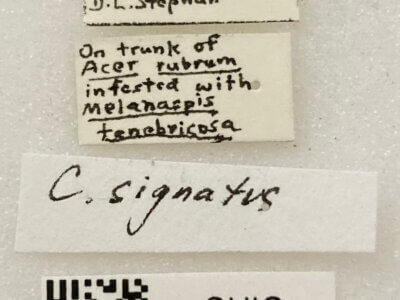 D.L. Stephan
On trunk of
Acer rubrum
infested with
Melanaspis
tenebricosa
C. signatus